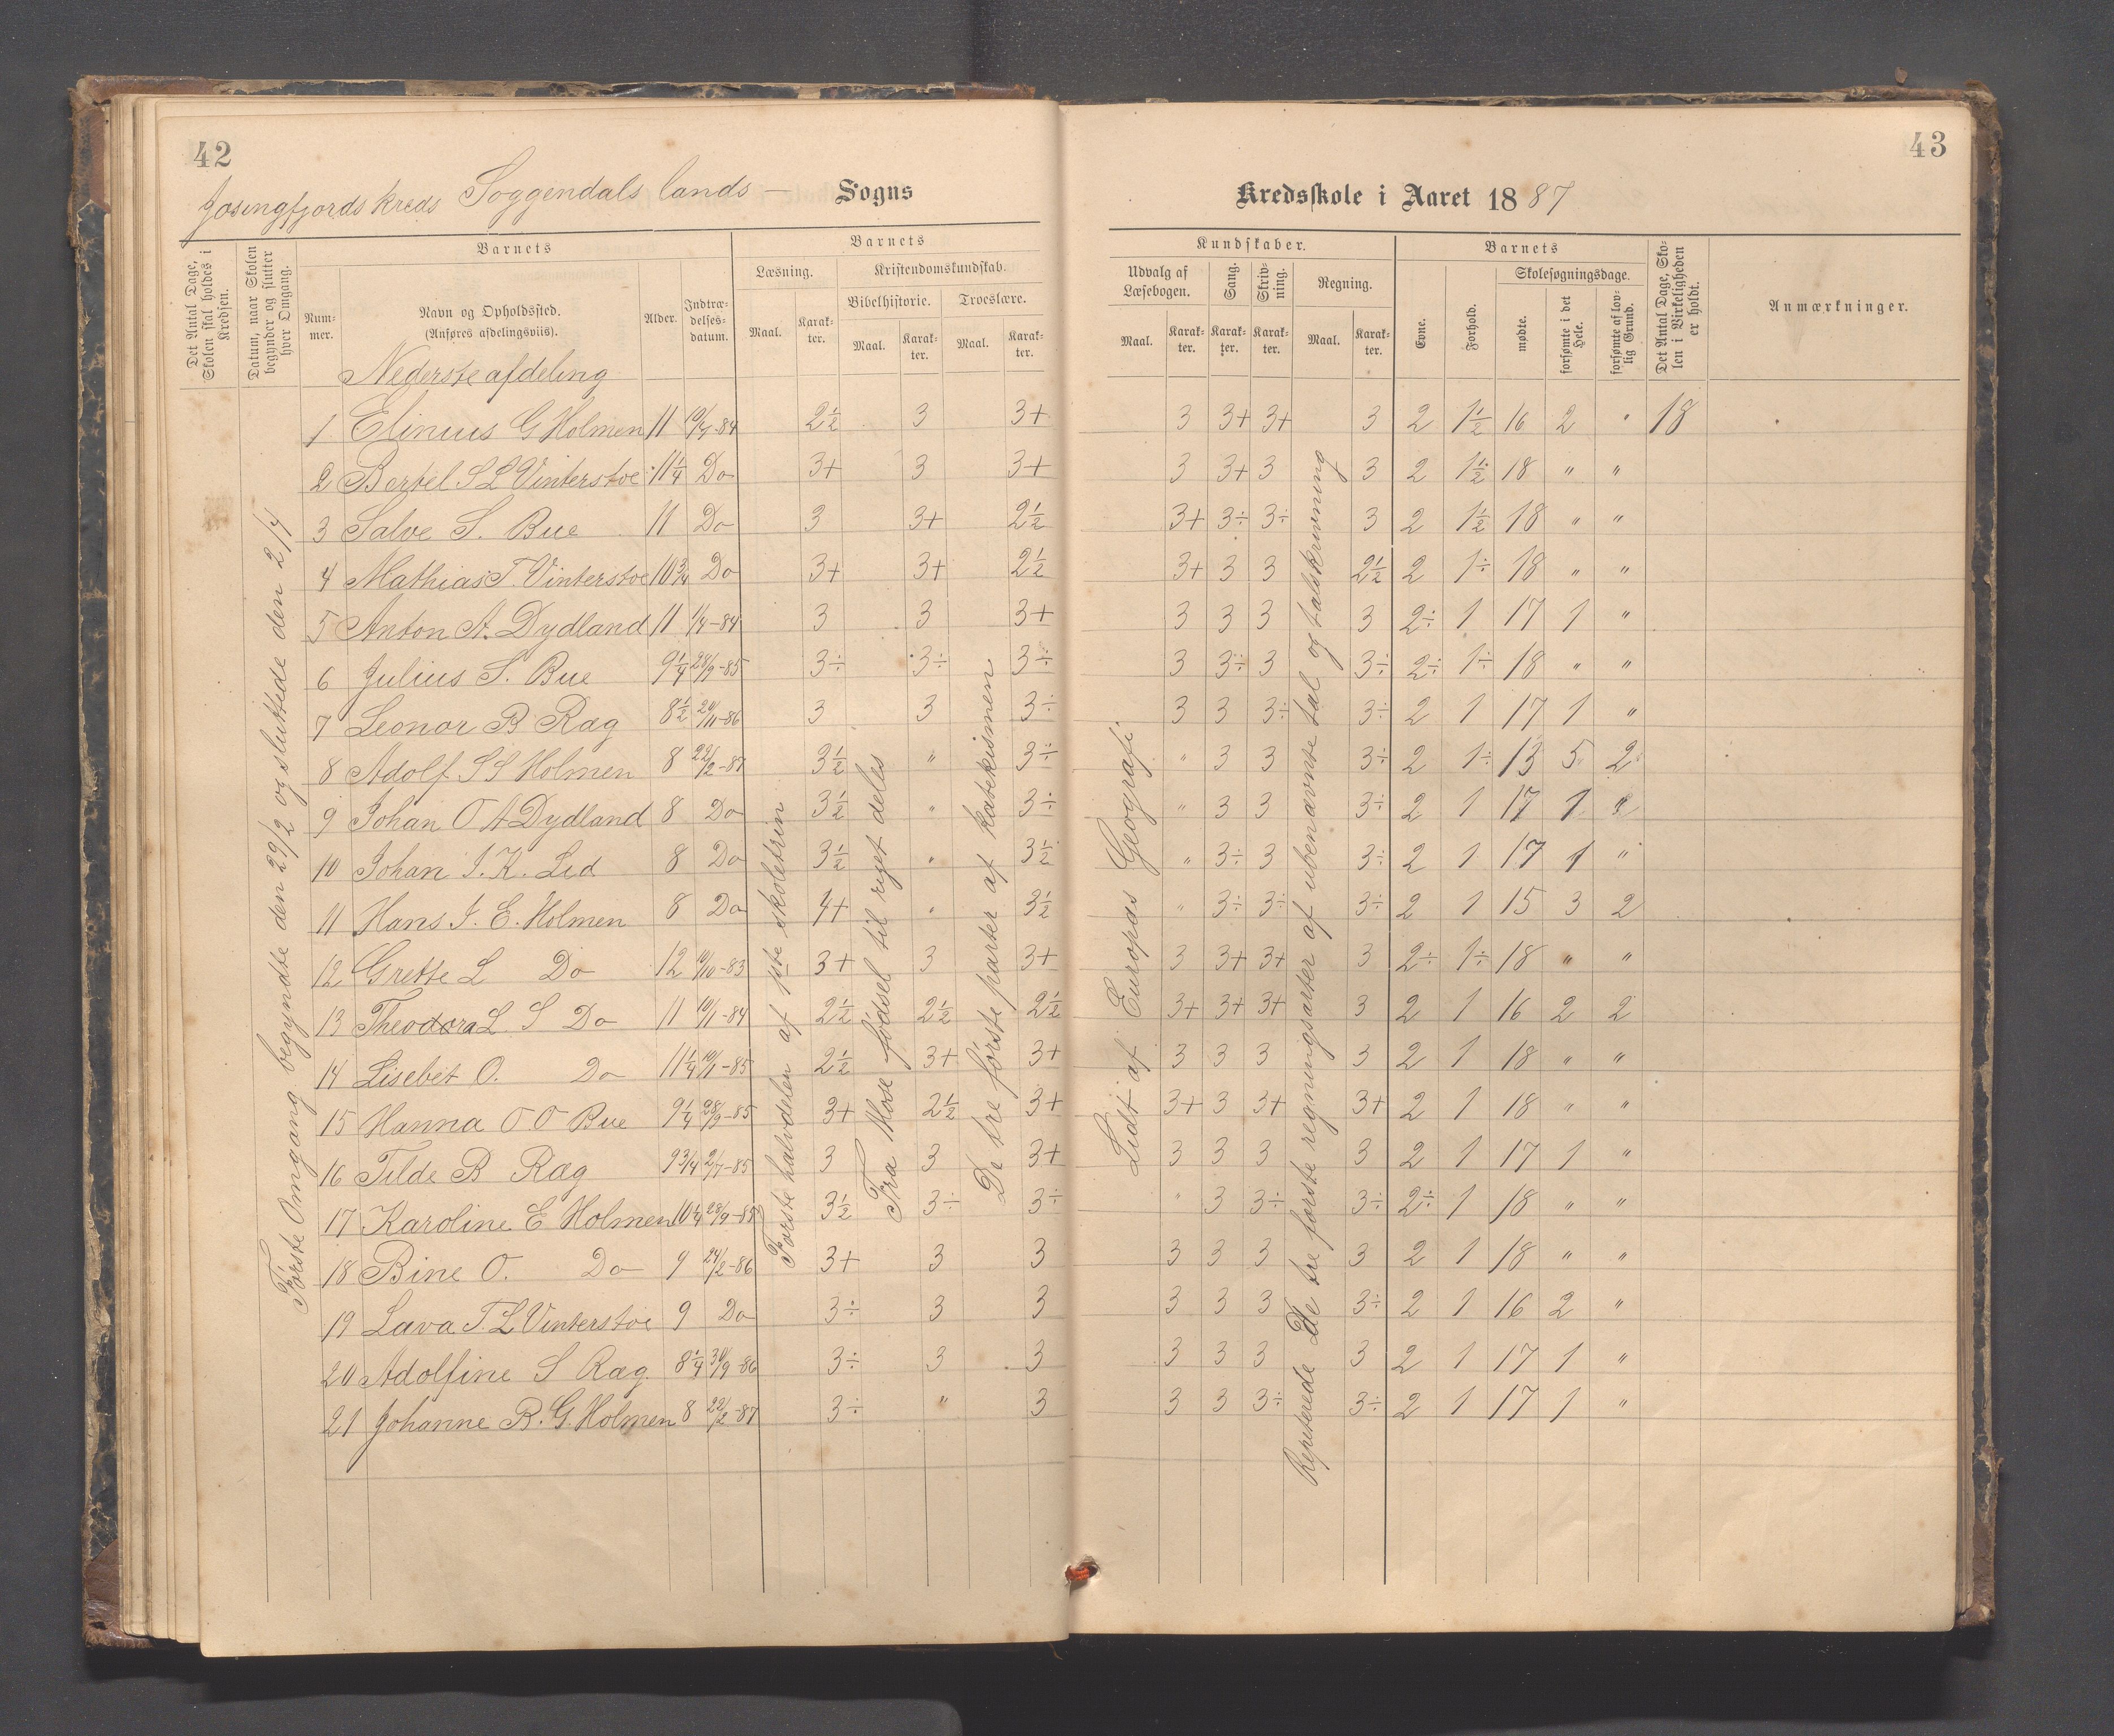 42
Josingfjords kreds Soggendals lands – Sogns
Det Antal Dage, Skolen skal holdes i Kredsen.
Datum, naar Skolen begynder og slutter hver Omgang.
Barnets
Nummer.
Navn og Opholdssted.
(Anføres afdelingsviis).
Alder.
Indtrædelsesdatum.
Barnets
Læsning.
Maal.
Karakter.
Kristendomskundskab.
Bibelhistorie.
Maal.
Karakter.
Troeslære.
Maal.
Karakter.
Nederste afdeling
1 Elinius G Holmen 11 10/7-84 2½ 3 3+
2 Bertel S L Vinterstoe 11¼ Do 3+ 3 3+
3 Salve S. Bue 11 Do 3 3+ 2½
4 Mathias T. Vinterstoe 10¾ Do 3+ 3+ 2½
5 Anton A. Dydland 11 1/7-84 3 3 3+
6 Julius S. Bue 9¼ 28/9-85 3÷ 3÷ 3÷
7 Leonor B Ræg 8½ 20/11-86 3 3 3÷
8 Adolf S S Holmen 8 22/2-87 3½ " 3÷
9 Johan O A Dydland 8 Do 3½ " 3÷
10 Johan J. K. Lid 8 Do 3½ " 3½
11 Hans J. E. Holmen 8 Do 4+ " 3½
12 Grette L Do 12 10/10-83 3+ 3 3+
13 Theodora L. S Do 11 10/11-84 2½ 2½ 2½
14 Lisebet O. Do 11¼ 10/1-85 2½ 3+ 3+
15 Hanna O. O Bue 9¼ 28/9-85 3+ 2½ 3+
16 Tilde B Ræg 9¾ 2/7-85 3 3 3+
17 Karoline E Holmen 10¼ 28/9-85 3½ 3÷ 3÷
18 Bine O. Do 9 24/2-86 3+ 3 3
19 Lava T. L Vinterstoe 9 Do 3÷ 3 3
20 Adolfine S Ræg 8¼ 30/9-86 3÷ 3 3
21 Johanne B. G. Holmen 8 22/2-87 3÷ " 3
Første Omgang begyndte den 29/2 og sluttede den 2/4
Første halvdelen af 1ste skoletrin
Fra Mose fødsel til riget deles
De tre første parter af katekismen
43
Kredsskole i Aaret 1887
Kundskaber.
Udvalg af Læsebogen.
Maal.
Karakter.
Sang.
Karakter.
Skrivning.
Karakter.
Regning.
Maal.
Karakter.
Barnets
Evne.
Forhold.
Skolesøgningsdage.
mødte.
forsømte i det Hele.
forsømte af lovlig Grund.
Det Antal Dage, Skolen i Virkeligheden er holdt.
Anmærkninger.
3 3+ 3+ 3 2 1½ 16 2 " 18
3 3+ 3 3 2 1½ 18 " "
3+ 3÷ 3÷ 3 2 1½ 18 " "
3+ 3 3 2½ 2 1÷ 18 " "
3 3 3 3 2÷ 1 17 1 "
3 3÷ 3 3÷ 2÷ 1÷ 18 " "
3 3 3÷ 3÷ 2 1 17 1 "
" 3 3 3÷ 2 1÷ 13 5 2
" 3 3 3÷ 2 1 17 1 "
" 3÷ 3 3÷ 2 1 17 1 "
" 3÷ 3÷ 3÷ 2 1 15 3 2
3 3+ 3+ 3 2÷ 1÷ 18 " "
3+ 3+ 3+ 3 2 1 16 2 2
3 3 3 3 2 1 18 " "
3+ 3 3+ 3+ 2 1 18 " "
3 3 3 3 2 1 17 1 "
" 3 3÷ 3÷ 2÷ 1 18 " "
3 3 3 3 2 1 18 " "
3 3 3 3÷ 2 1 16 2 "
3 3 3 3 2 1 17 1 "
3 3 3÷ 3÷ 2 1 17 1 "
Lidt af Europas Geografi.
Repeterede De tre første regningsarter af ubenævnte tal og talskrivning